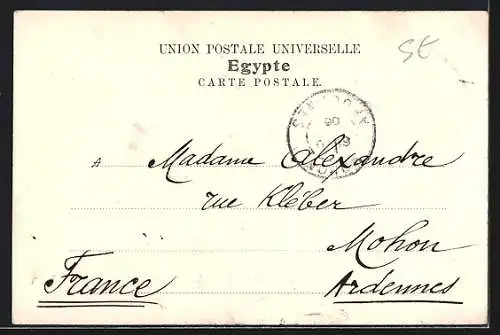 UNION POSTALE UNIVERSELLE
Egypte
CARTE POSTALE.
St
A Madame Alexandre
rue Kléber
Mohon
France
Ardennes